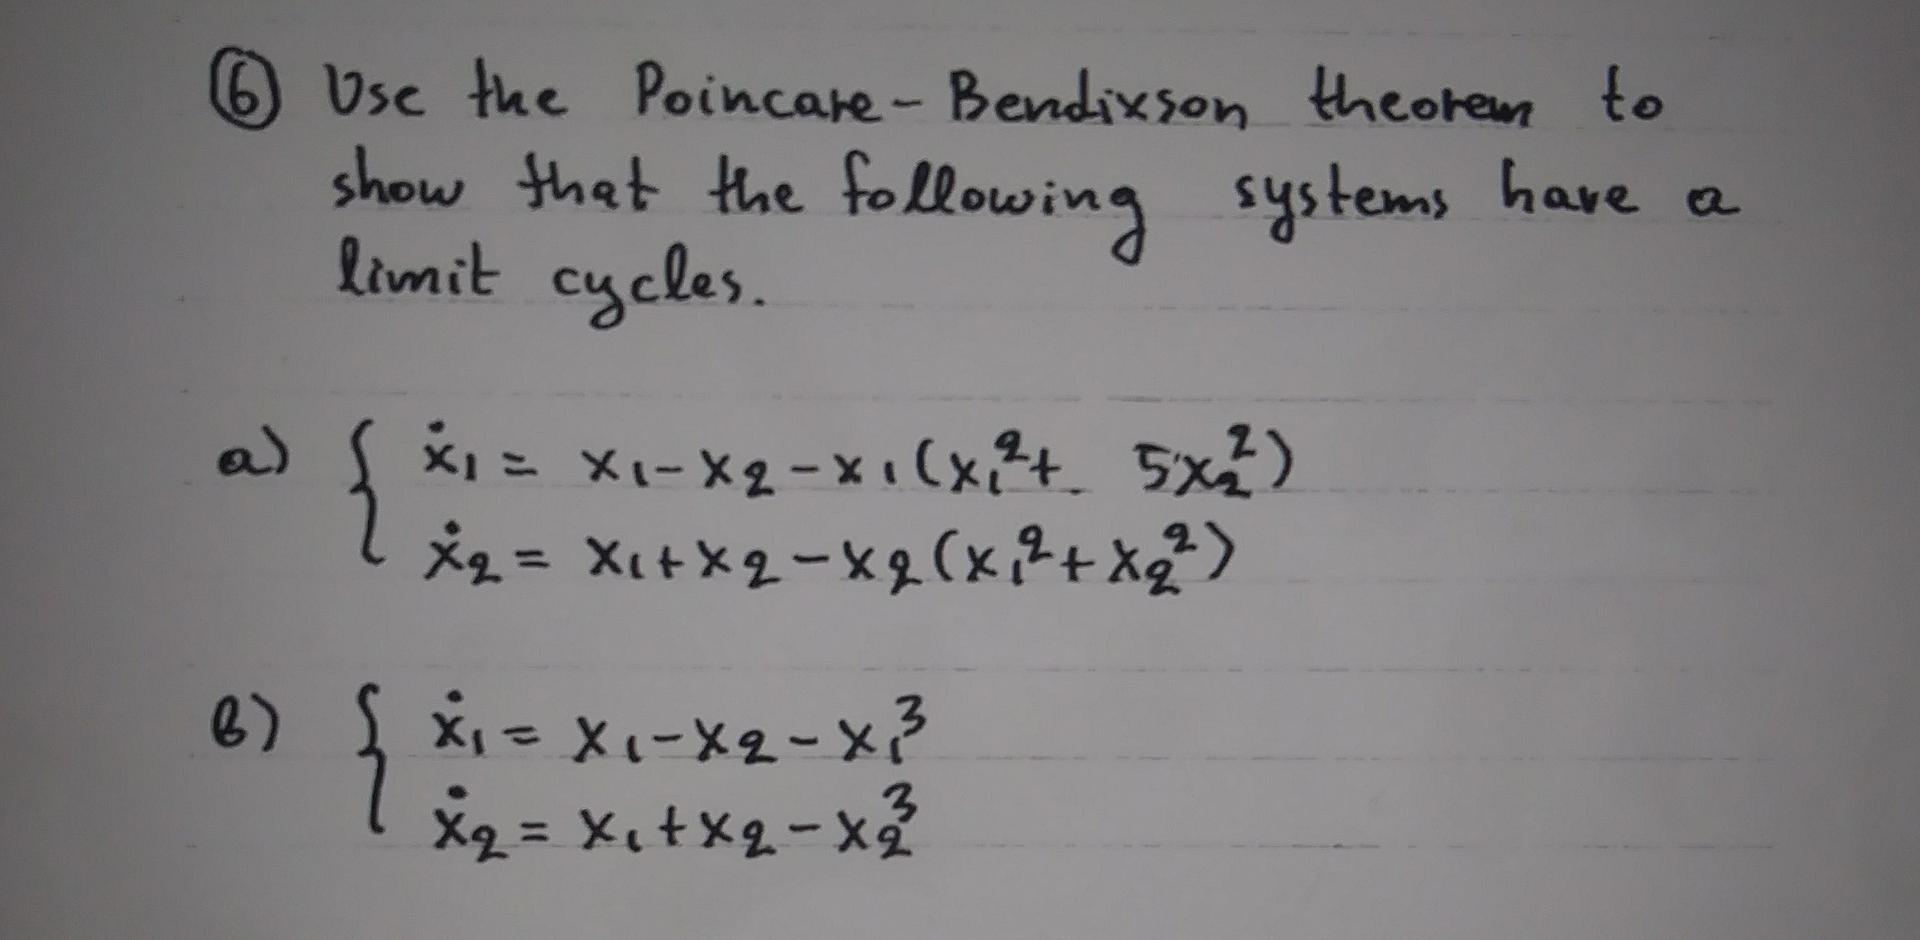 ⑥ Use the Poincare-Bendixson theorem to
show that the following systems have a
limit cycles.
a) { ẋ₁ = x₁-x₂-x₁(x₁²+ 5x₂²)
ẋ₂ = x₁+x₂-x₂(x₁²+x₂²)
b) { ẋ₁ = x₁-x₂-x₁³
ẋ₂ = x₁+x₂-x₂³